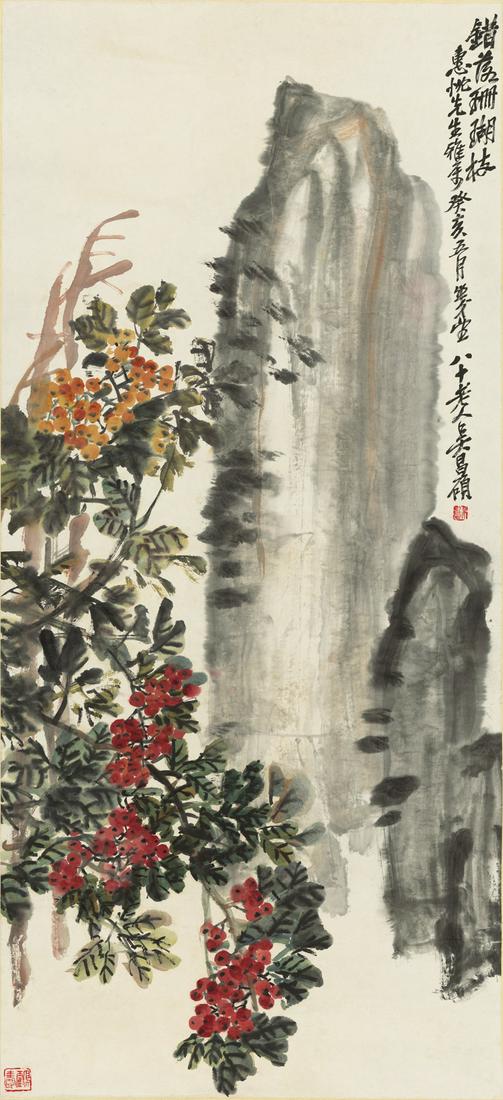 錯落珊瑚枝
惠忱先生雅屬癸亥五月 八十老人吳昌碩